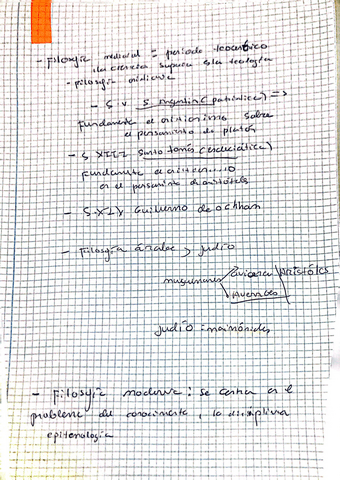 - Filosofia medieval = periodo teocéntrico
, la ciencia supura es la teología
- Filosofia cristiana
- S V S. Agustín (patristica) =>
fundamenta el cristianismo sobre
el pensamiento de platón
- S XIII Santo tomás (escolástica)
fundamenta el cristian...mo
en el pensamiento de aristóteles
- S. XIV Guillermo de ockham
- Filosofia árabe y judío
musulmanes Avicena Aristóteles
Averroes
judío = maimónides
- Filosofia moderna : se centra en el
problema del conocimiento , la disciplina
epistemologia